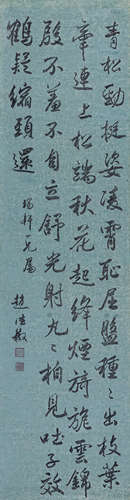 青松勁挺姿凌霄恥屈盤種種出枝葉
牽連上松端秋花起絳煙旖旎雲錦
殷不羞不自立舒光射丸丸柏見吐子效
鶴疑縮頸還
趙